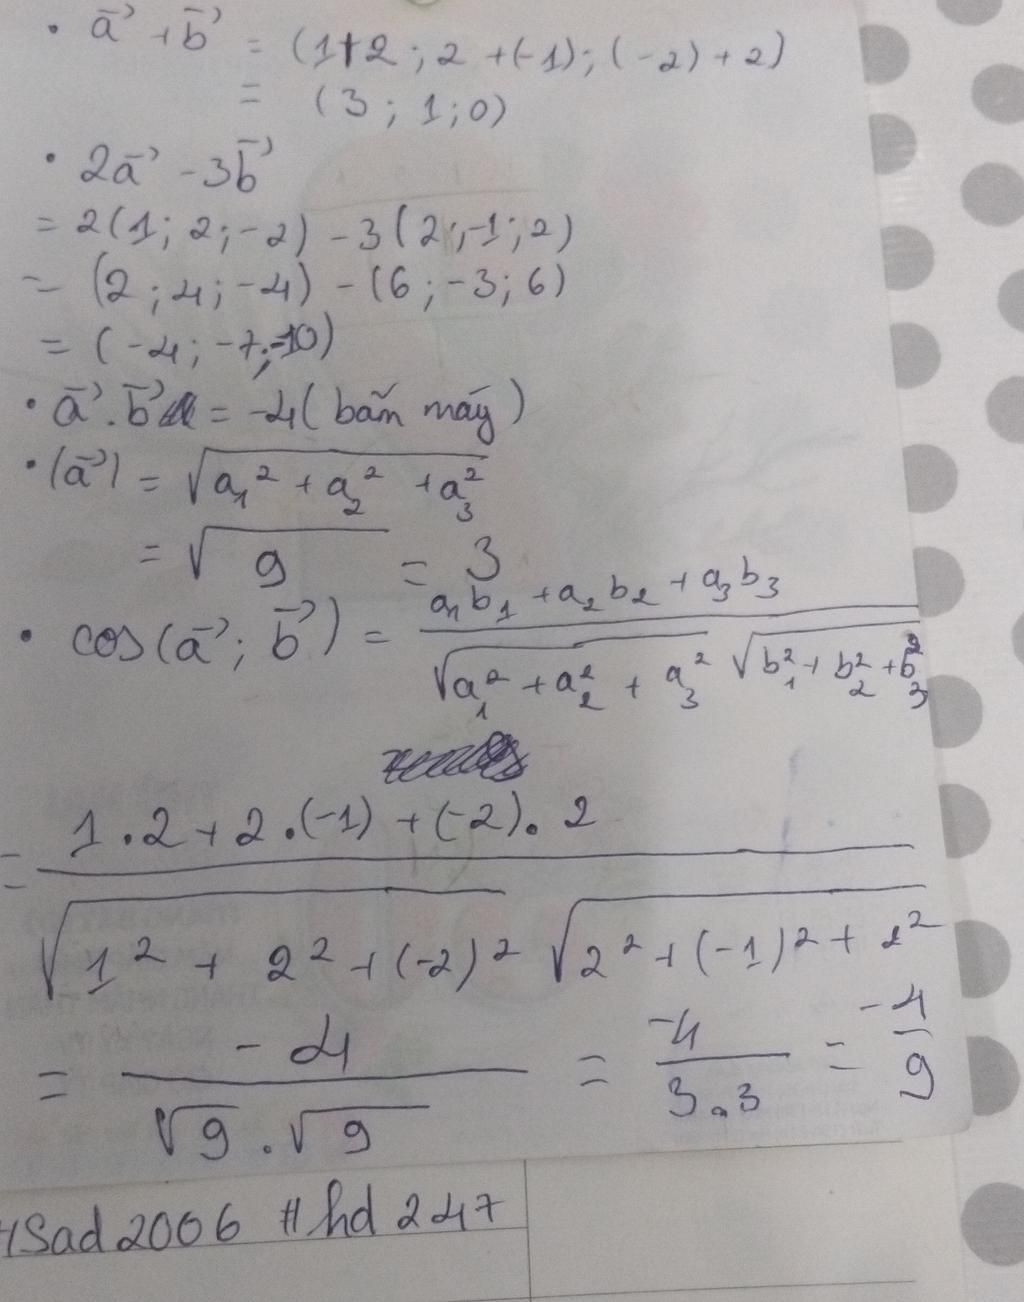 • a⃗ + b⃗ = (1+2 ; 2 +(-1) ; (-2) + 2)
= (3 ; 1 ; 0)
• 2a⃗ - 3b⃗
= 2(1 ; 2 ; -2) - 3(2 ; -1 ; 2)
= (2 ; 4 ; -4) - (6 ; -3 ; 6)
= (-4 ; -7 ; -10)
• a⃗ . b⃗ = -4 (bấm máy)
• |a⃗| = √(a₁² + a₂² + a₃²)
= √9 = 3
• cos(a⃗ ; b⃗) = (a₁b₁ + a₂b₂ + a₃b₃) / (√(a₁² + a₂² + a₃²) √(b₁² + b₂² + b₃²))
= (1 . 2 + 2 . (-1) + (-2) . 2) / (√(1² + 2² + (-2)²) √(2² + (-1)² + 2²))
= -4 / (√9 . √9) = -4 / (3 . 3) = -4 / 9
#Sad2006 #hd247